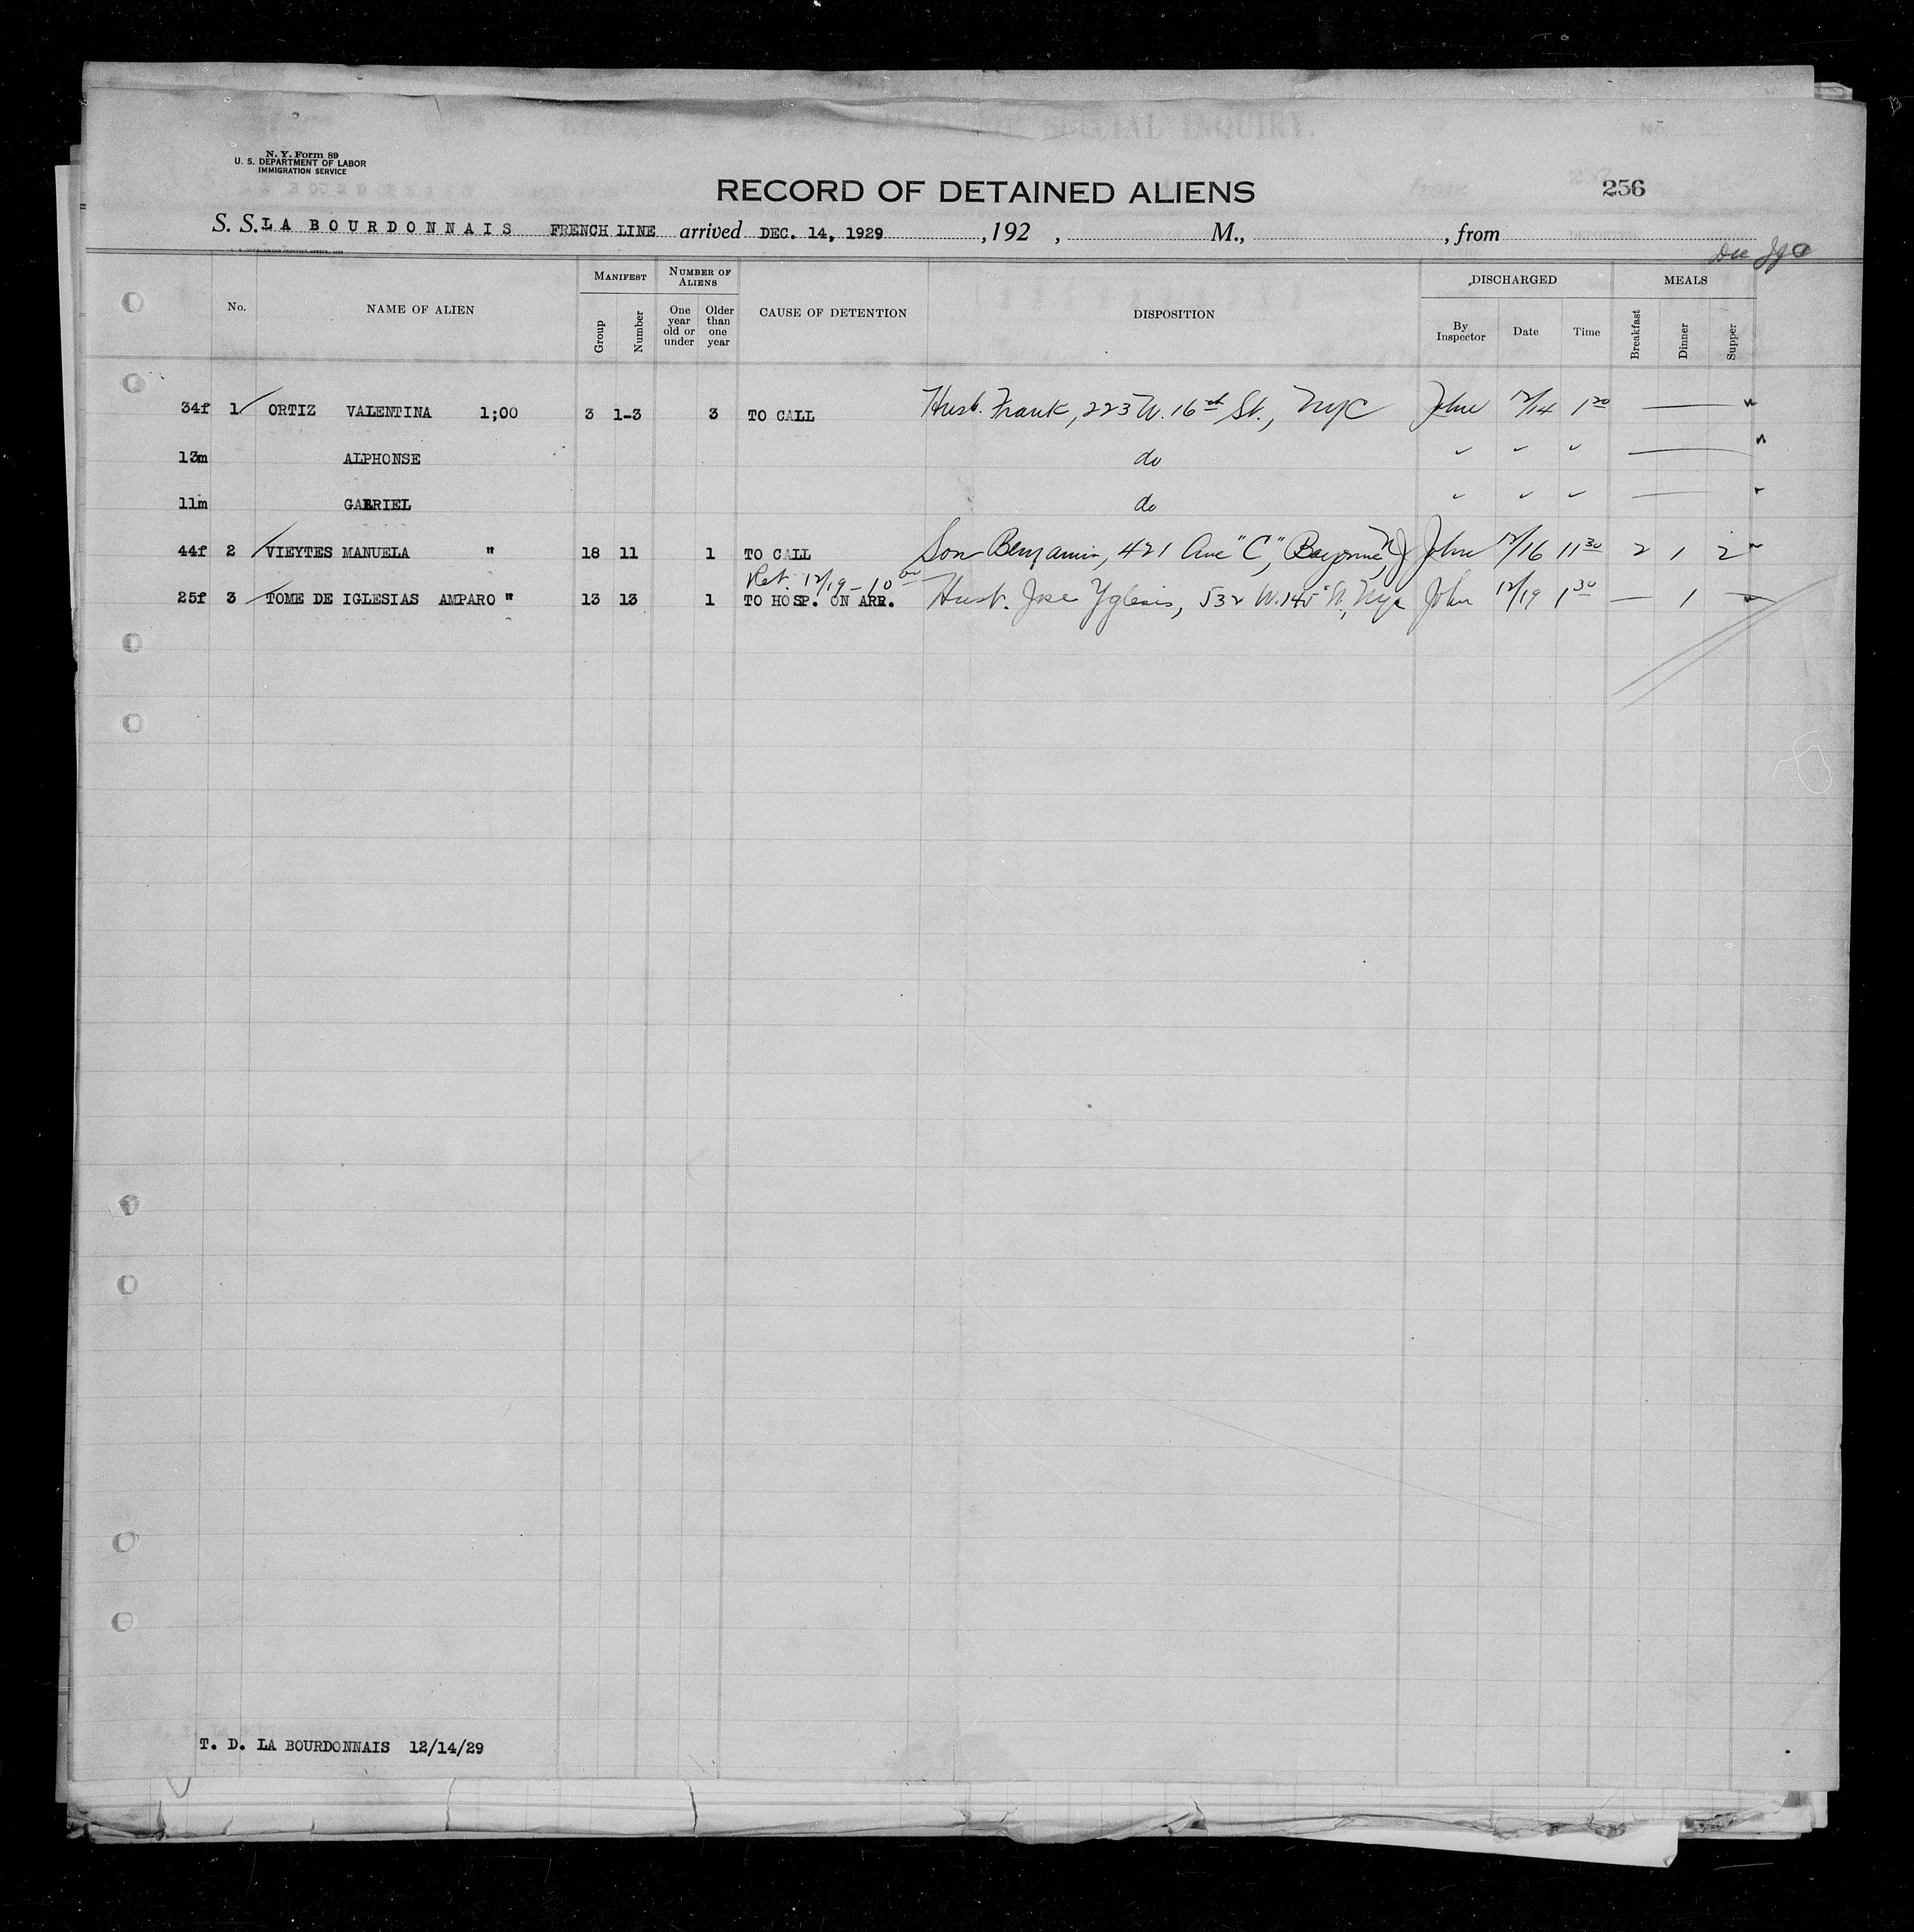 N. Y. Form 89
U. S. DEPARTMENT OF LABOR
IMMIGRATION SERVICE
RECORD OF DETAINED ALIENS
256
S. S. LA BOURDONNAIS FRENCH LINE arrived DEC. 14, 1929 , 192 , M., , from
No. NAME OF ALIEN MANIFEST NUMBER OF ALIENS CAUSE OF DETENTION DISPOSITION DISCHARGED MEALS
Group Number One year old or under Older than one year By Inspector Date Time Breakfast Dinner Supper
34f 1 ORTIZ VALENTINA 1;00 3 1-3 3 TO CALL Husb. Frank, 223 W. 16th St., NYC John 12/14 1 20
13m ALPHONSE do
11m GABRIEL do
44f 2 VIEYTES MANUELA " 18 11 1 TO CALL Son Benjamin, 421 Ave "C", Bayonne, NJ John 12/16 11 30 2 1 2
Ret. 12/19 - 10 00
25f 3 TOME DE IGLESIAS AMPARO " 13 13 1 TO HOSP. ON ARR. Husb. Jose Yglesis, 532 W. 145 NYC John 12/19 1 30 — 1 —
T. D. LA BOURDONNAIS 12/14/29